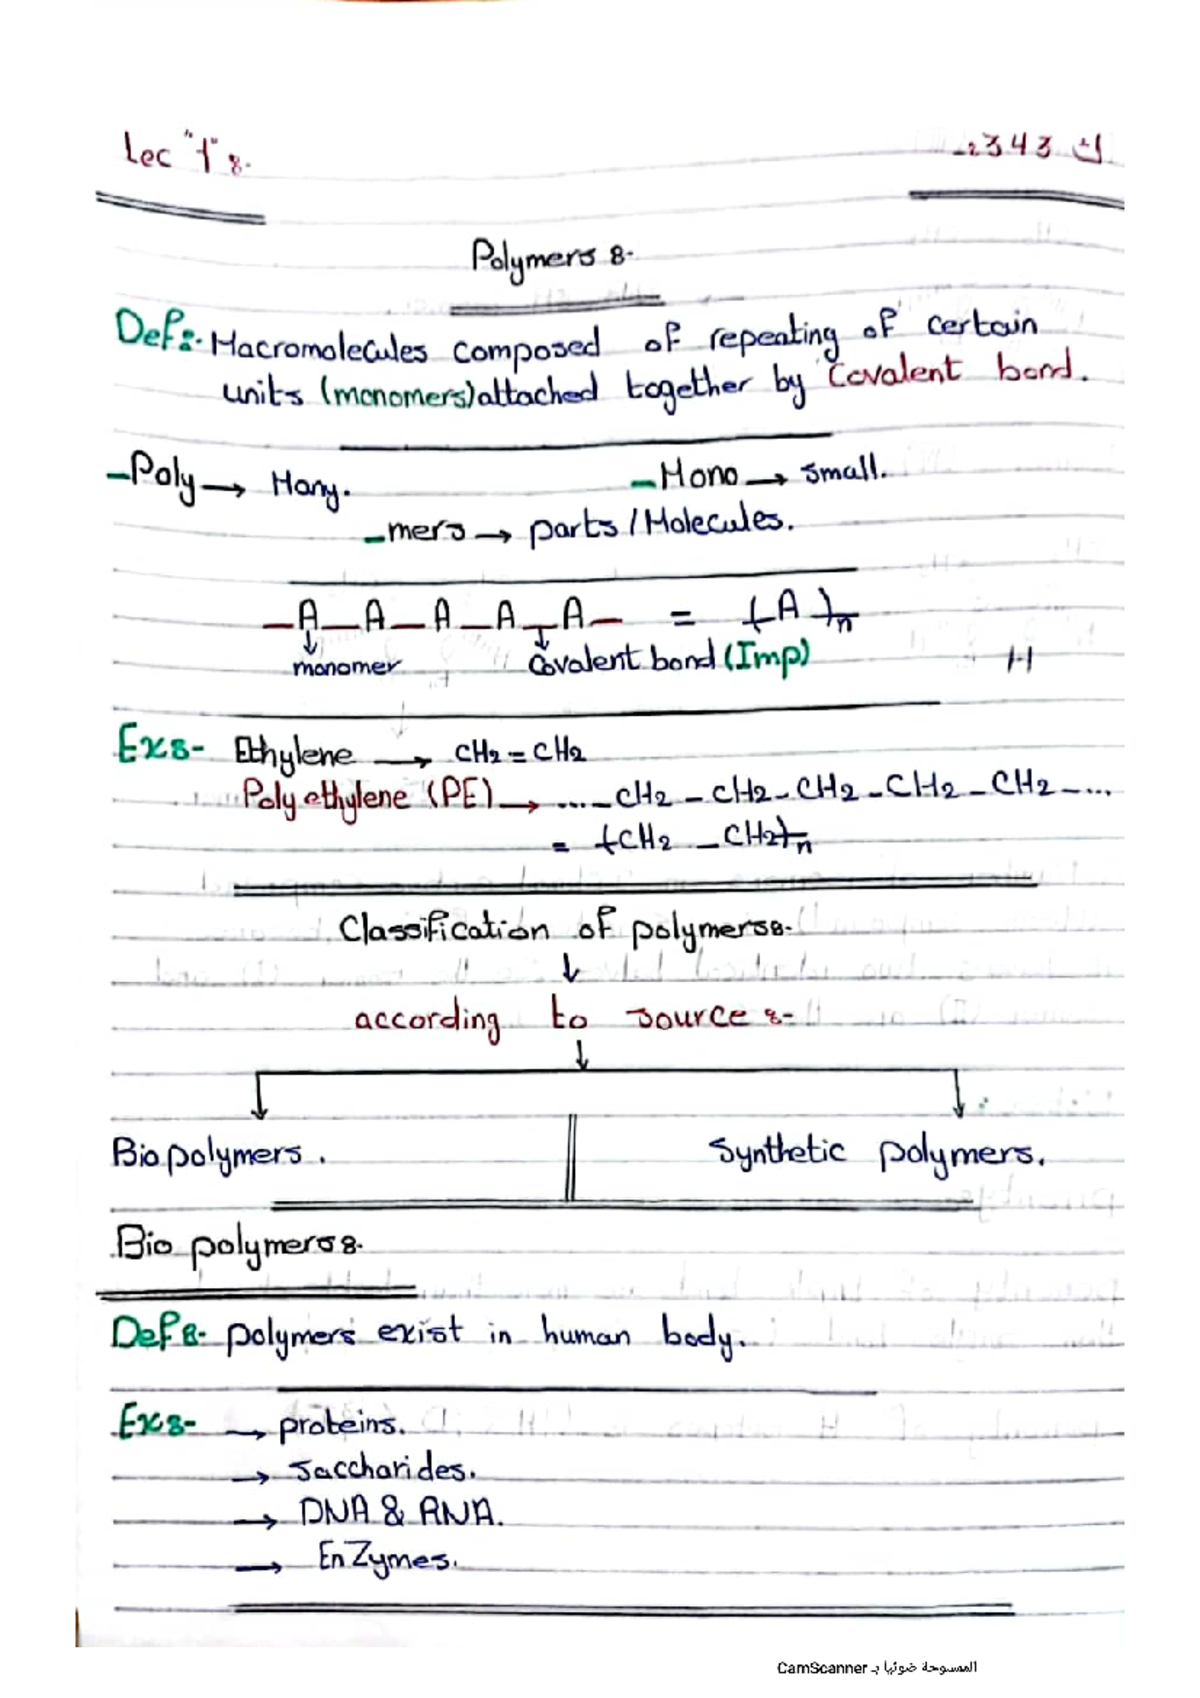 Lec "1" :-
2343 ك
Polymers :-
Def:- Macromolecules composed of repeating of certain
units (monomers) attached together by Covalent bond.
- Poly → Many.
- Mono → small.
- mers → parts / Molecules.
- A - A - A - A - A - = -( A )-n
monomer
Covalent bond (Imp)
Ex:- Ethylene → CH2 = CH2
Poly ethylene (PE) → .... - CH2 - CH2 - CH2 - CH2 - CH2 - ...
= -( CH2 - CH2 )-n
Classification of polymers:-
↓
according to source :-
↓
Biopolymers .
Synthetic polymers.
Bio polymers :-
Def :- polymers exist in human body.
Ex :- → proteins.
→ Saccharides.
→ DNA & RNA.
→ EnZymes.
الممسوحة ضوئيا بـ CamScanner